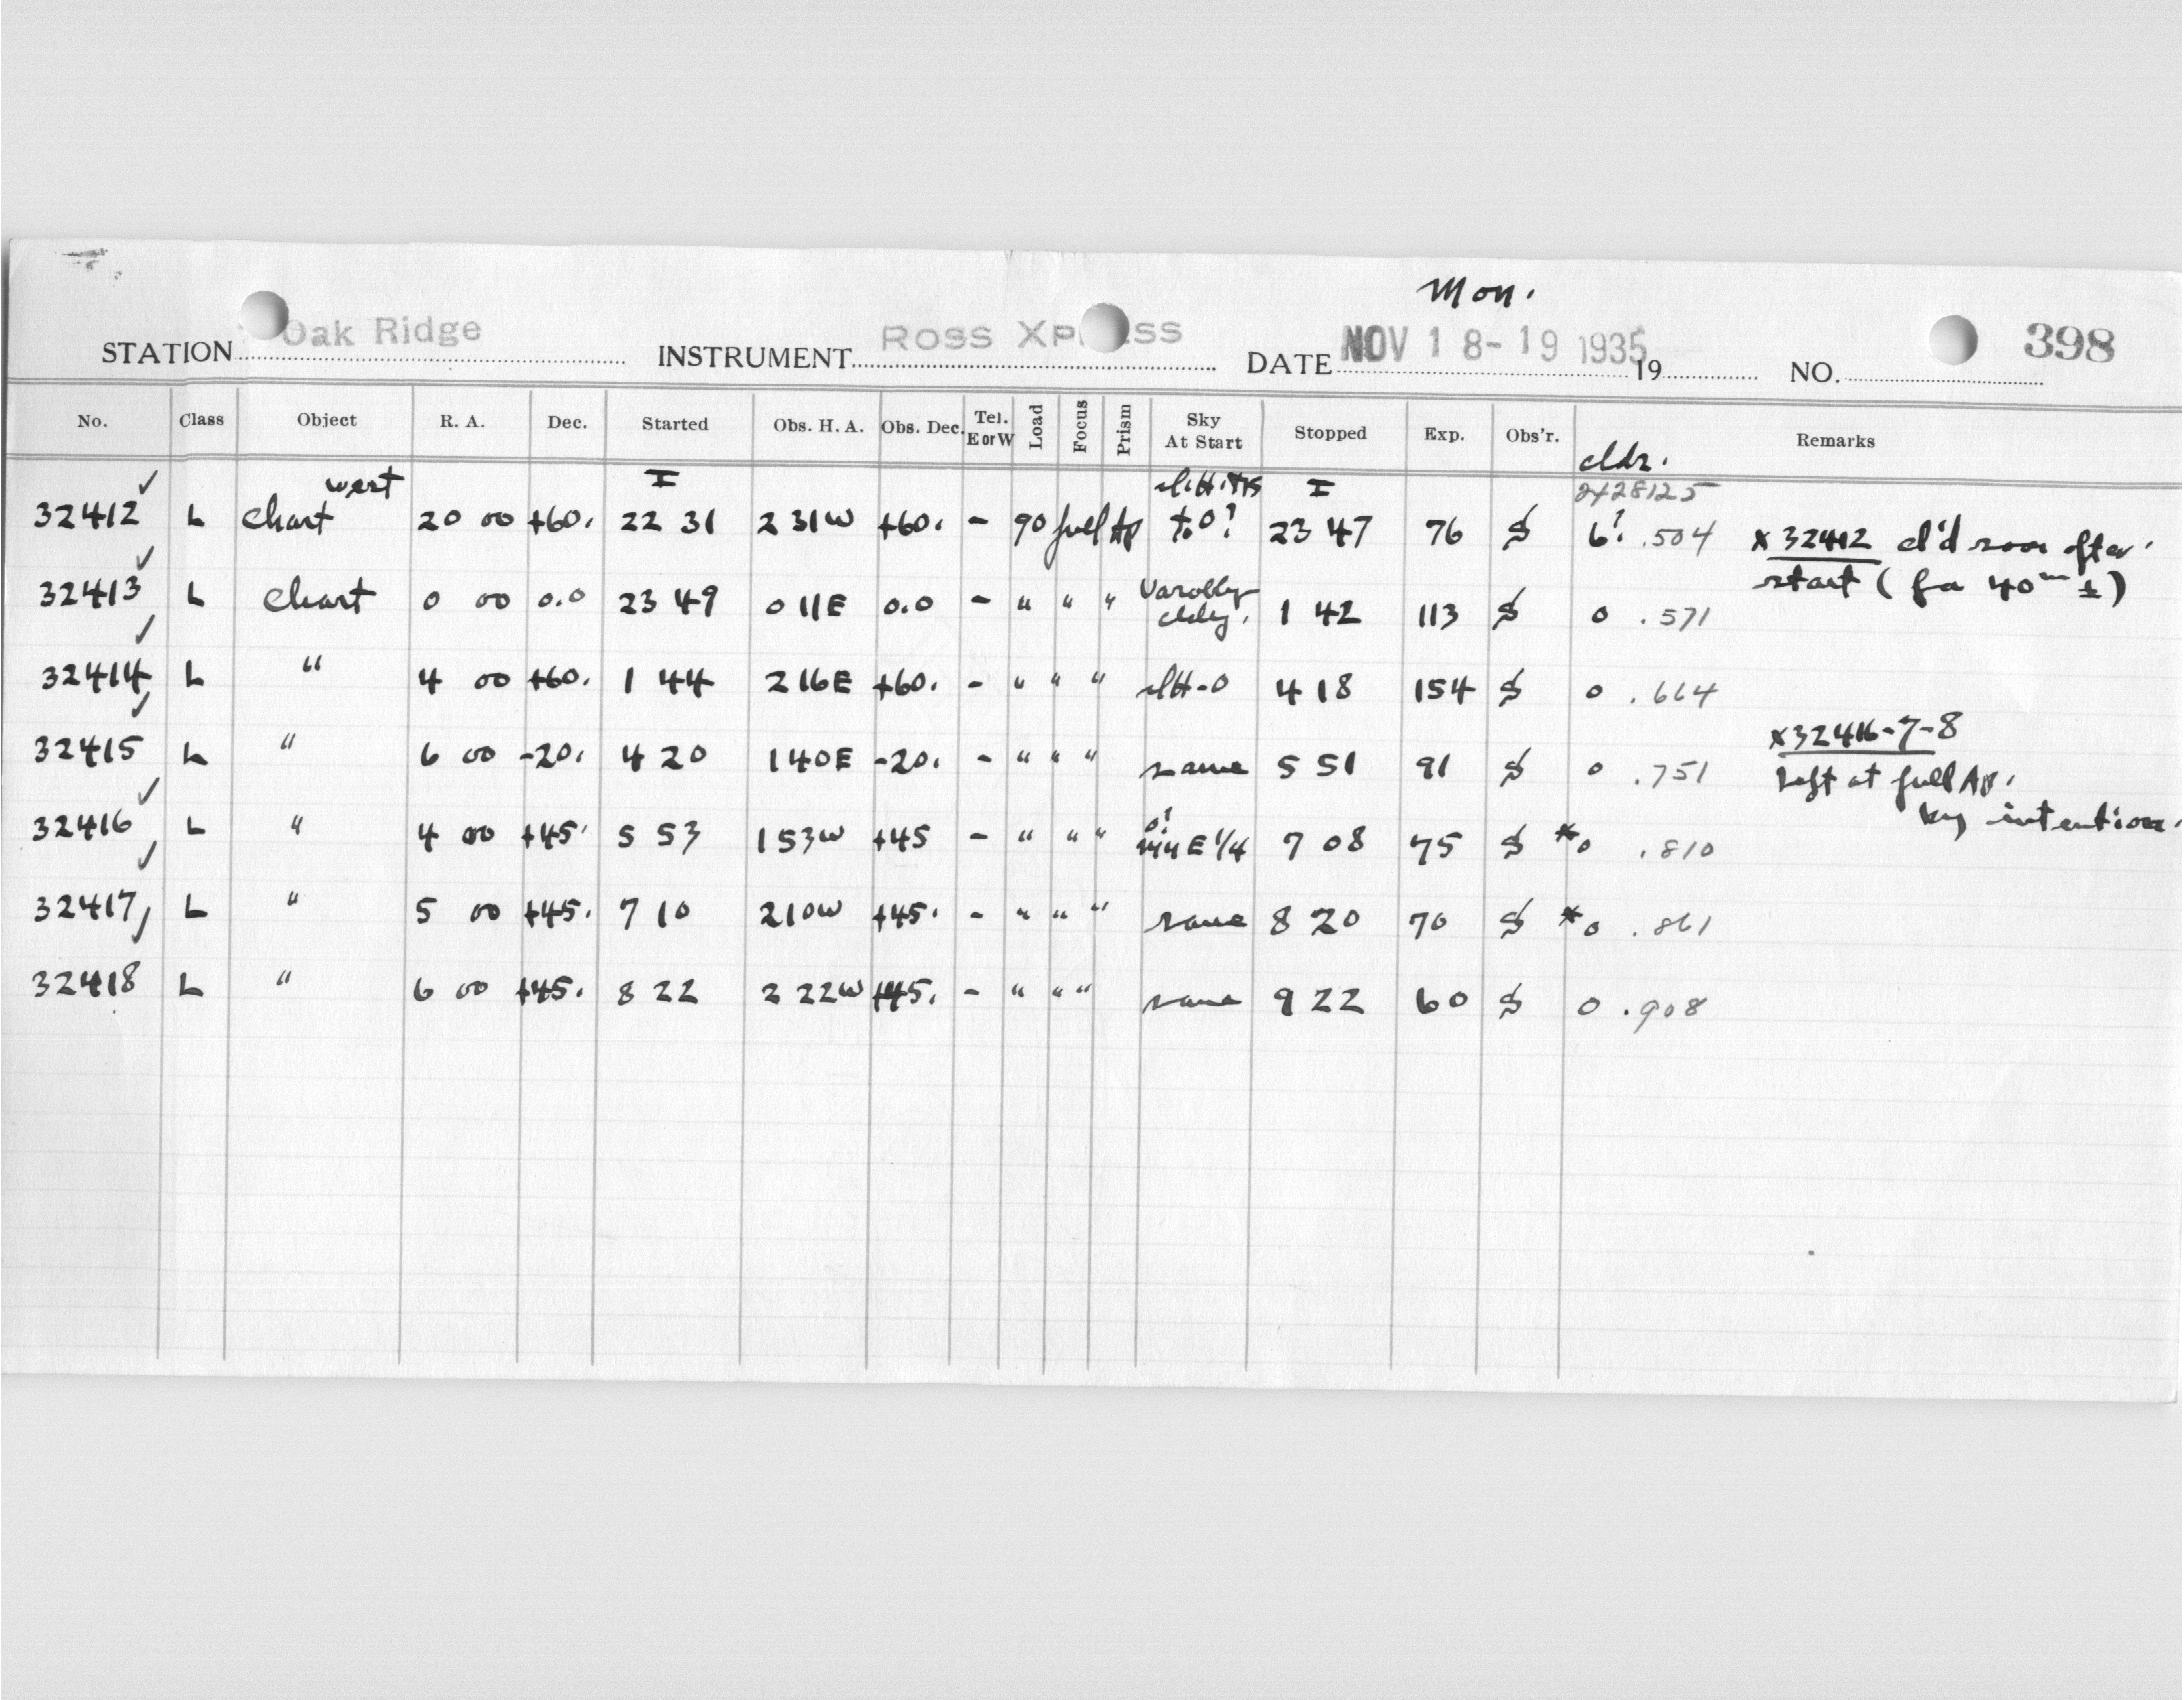 Mon.
STATION Oak Ridge INSTRUMENT ROSS XPRESS DATE NOV 18-19 1935 19 NO. 398
No. Class Object R. A. Dec. Started Obs. H. A. Obs. Dec. Tel. E or W Load Focus Prism Sky At Start Stopped Exp. Obs'r. Remarks
cldr.
west I I 2428125
32412 ✓ L Chart 20 00 +60. 22 31 2 31W +60. - 90 full Ap to 0? 23 47 76 $ 6? .504 x 32412 cl'd soon after
start (for 40m ±)
32413 ✓ L Chart 0 00 0.0 23 49 0 11E 0.0 - " " " Varobly cldy. 1 42 113 $ 0 .571
32414 ✓ L " 4 00 +60. 1 44 2 16E +60. - " " " -0 4 18 154 $ 0 .664
32415 ✓ L " 6 00 -20. 4 20 1 40E -20. - " " " same 5 51 91 $ 0 .751
x 32416-7-8
Left at full Ap.
by intention.
32416 ✓ L " 4 00 +45. 5 53 1 53W +45 - " " " 0? E 1/4 7 08 75 $ *0 .810
32417 ✓ L " 5 00 +45. 7 10 2 10W +45. - " " " same 8 20 70 $ *0 .861
32418 ✓ L " 6 00 +45. 8 22 2 22W +45. - " " " same 9 22 60 $ 0 .908